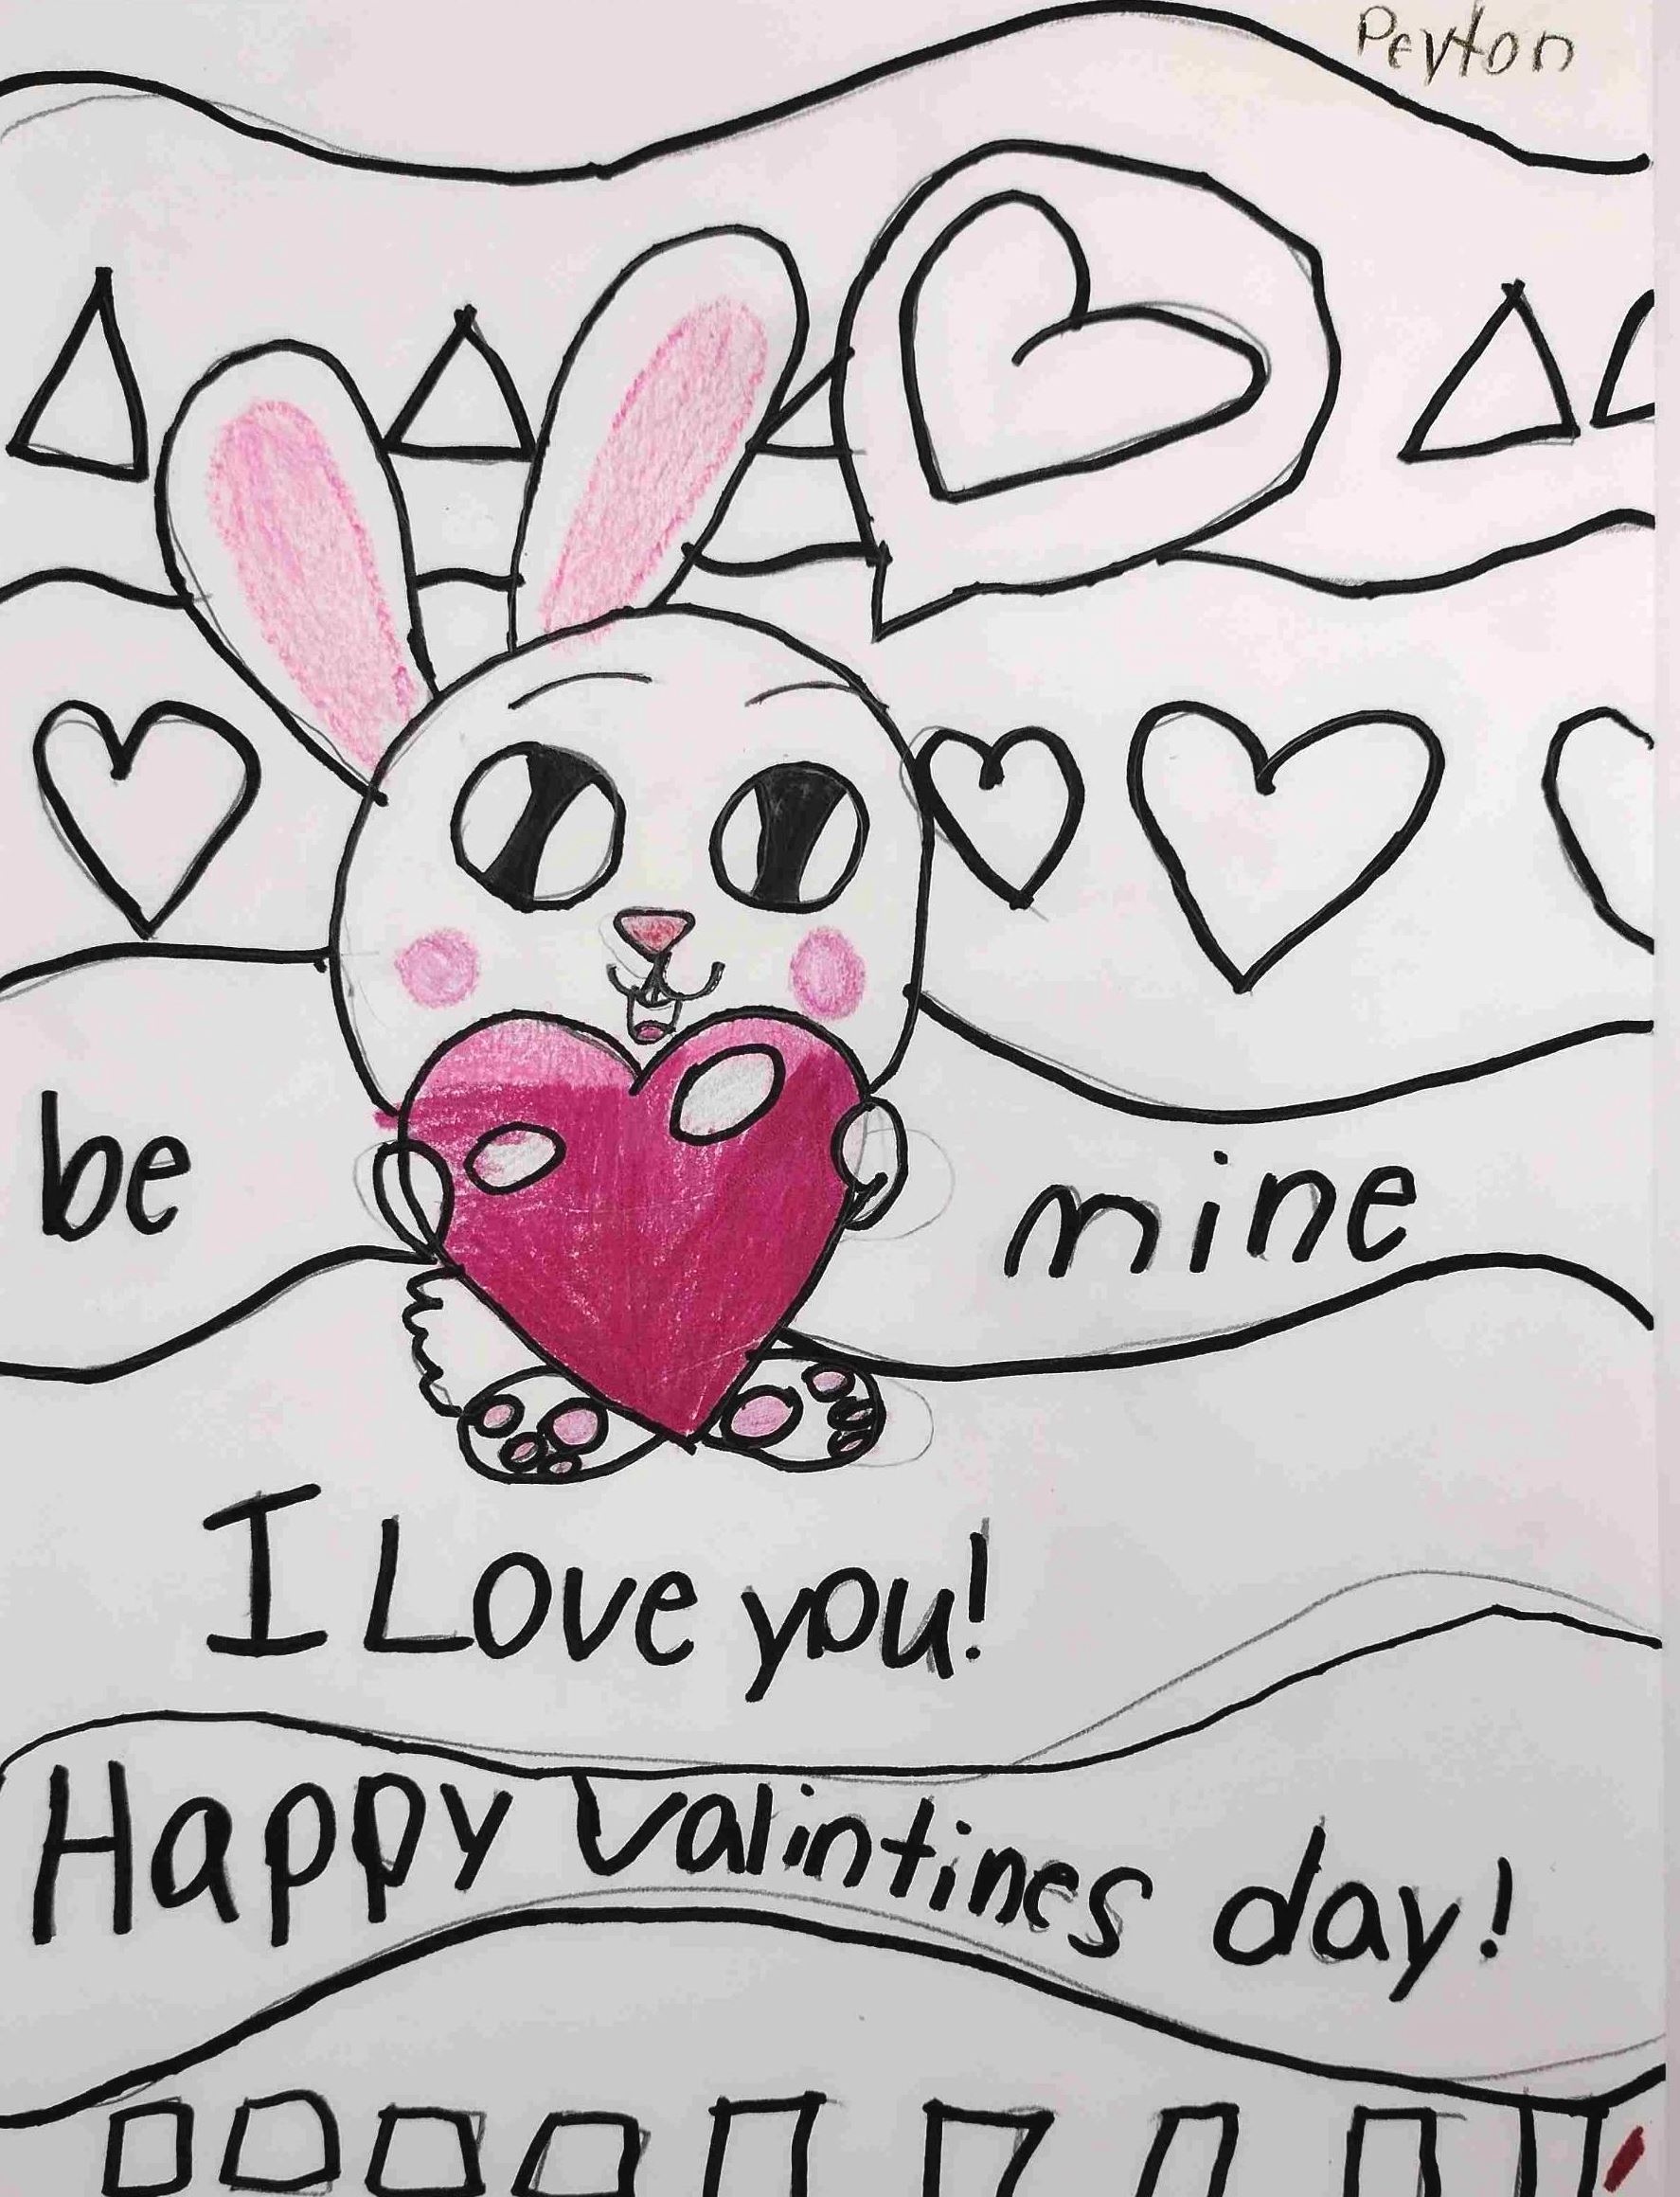 Peyton
be mine
I Love you!
Happy Valintines day!